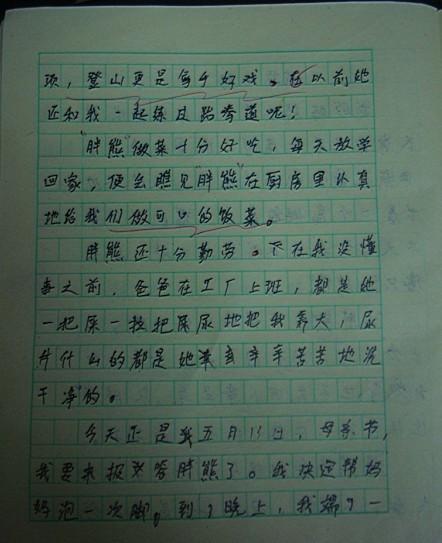 项，登山更是拿手好戏。在以前她
还和我一起练过跆拳道呢！
"胖熊"做菜十分好吃，每天放学
回家，便会瞧见"胖熊"在厨房里认真
地给我们做可口的饭菜。
胖熊还十分勤劳。在我没懂
事之前，爸爸在工厂上班，都是她
一把屎一把尿地把我养大，尿
片什么的都是她辛辛苦苦地洗
干净的。
今天正是五月13日，母亲节，
我要来报答胖熊了。我决定帮妈
妈泡一次脚。到了晚上，我端了一